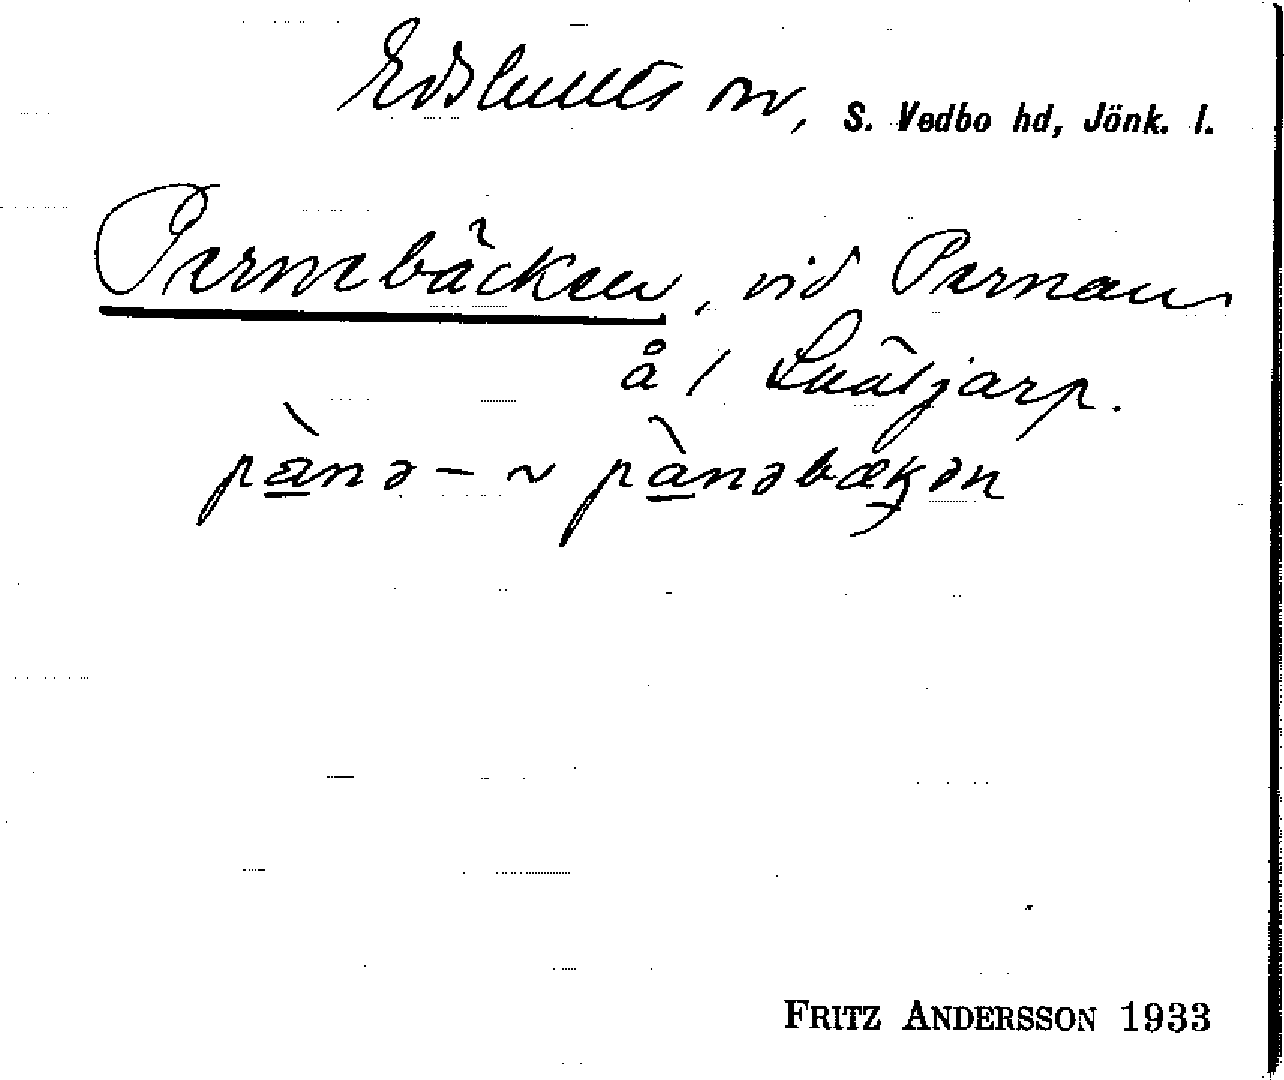 Edshults sn, S. Vedbo hd, Jönk. l.
Pernebäcken, vid Pernan
å 1
pànə– ~ pànəbækən
FRITZ ANDERSSON 1933